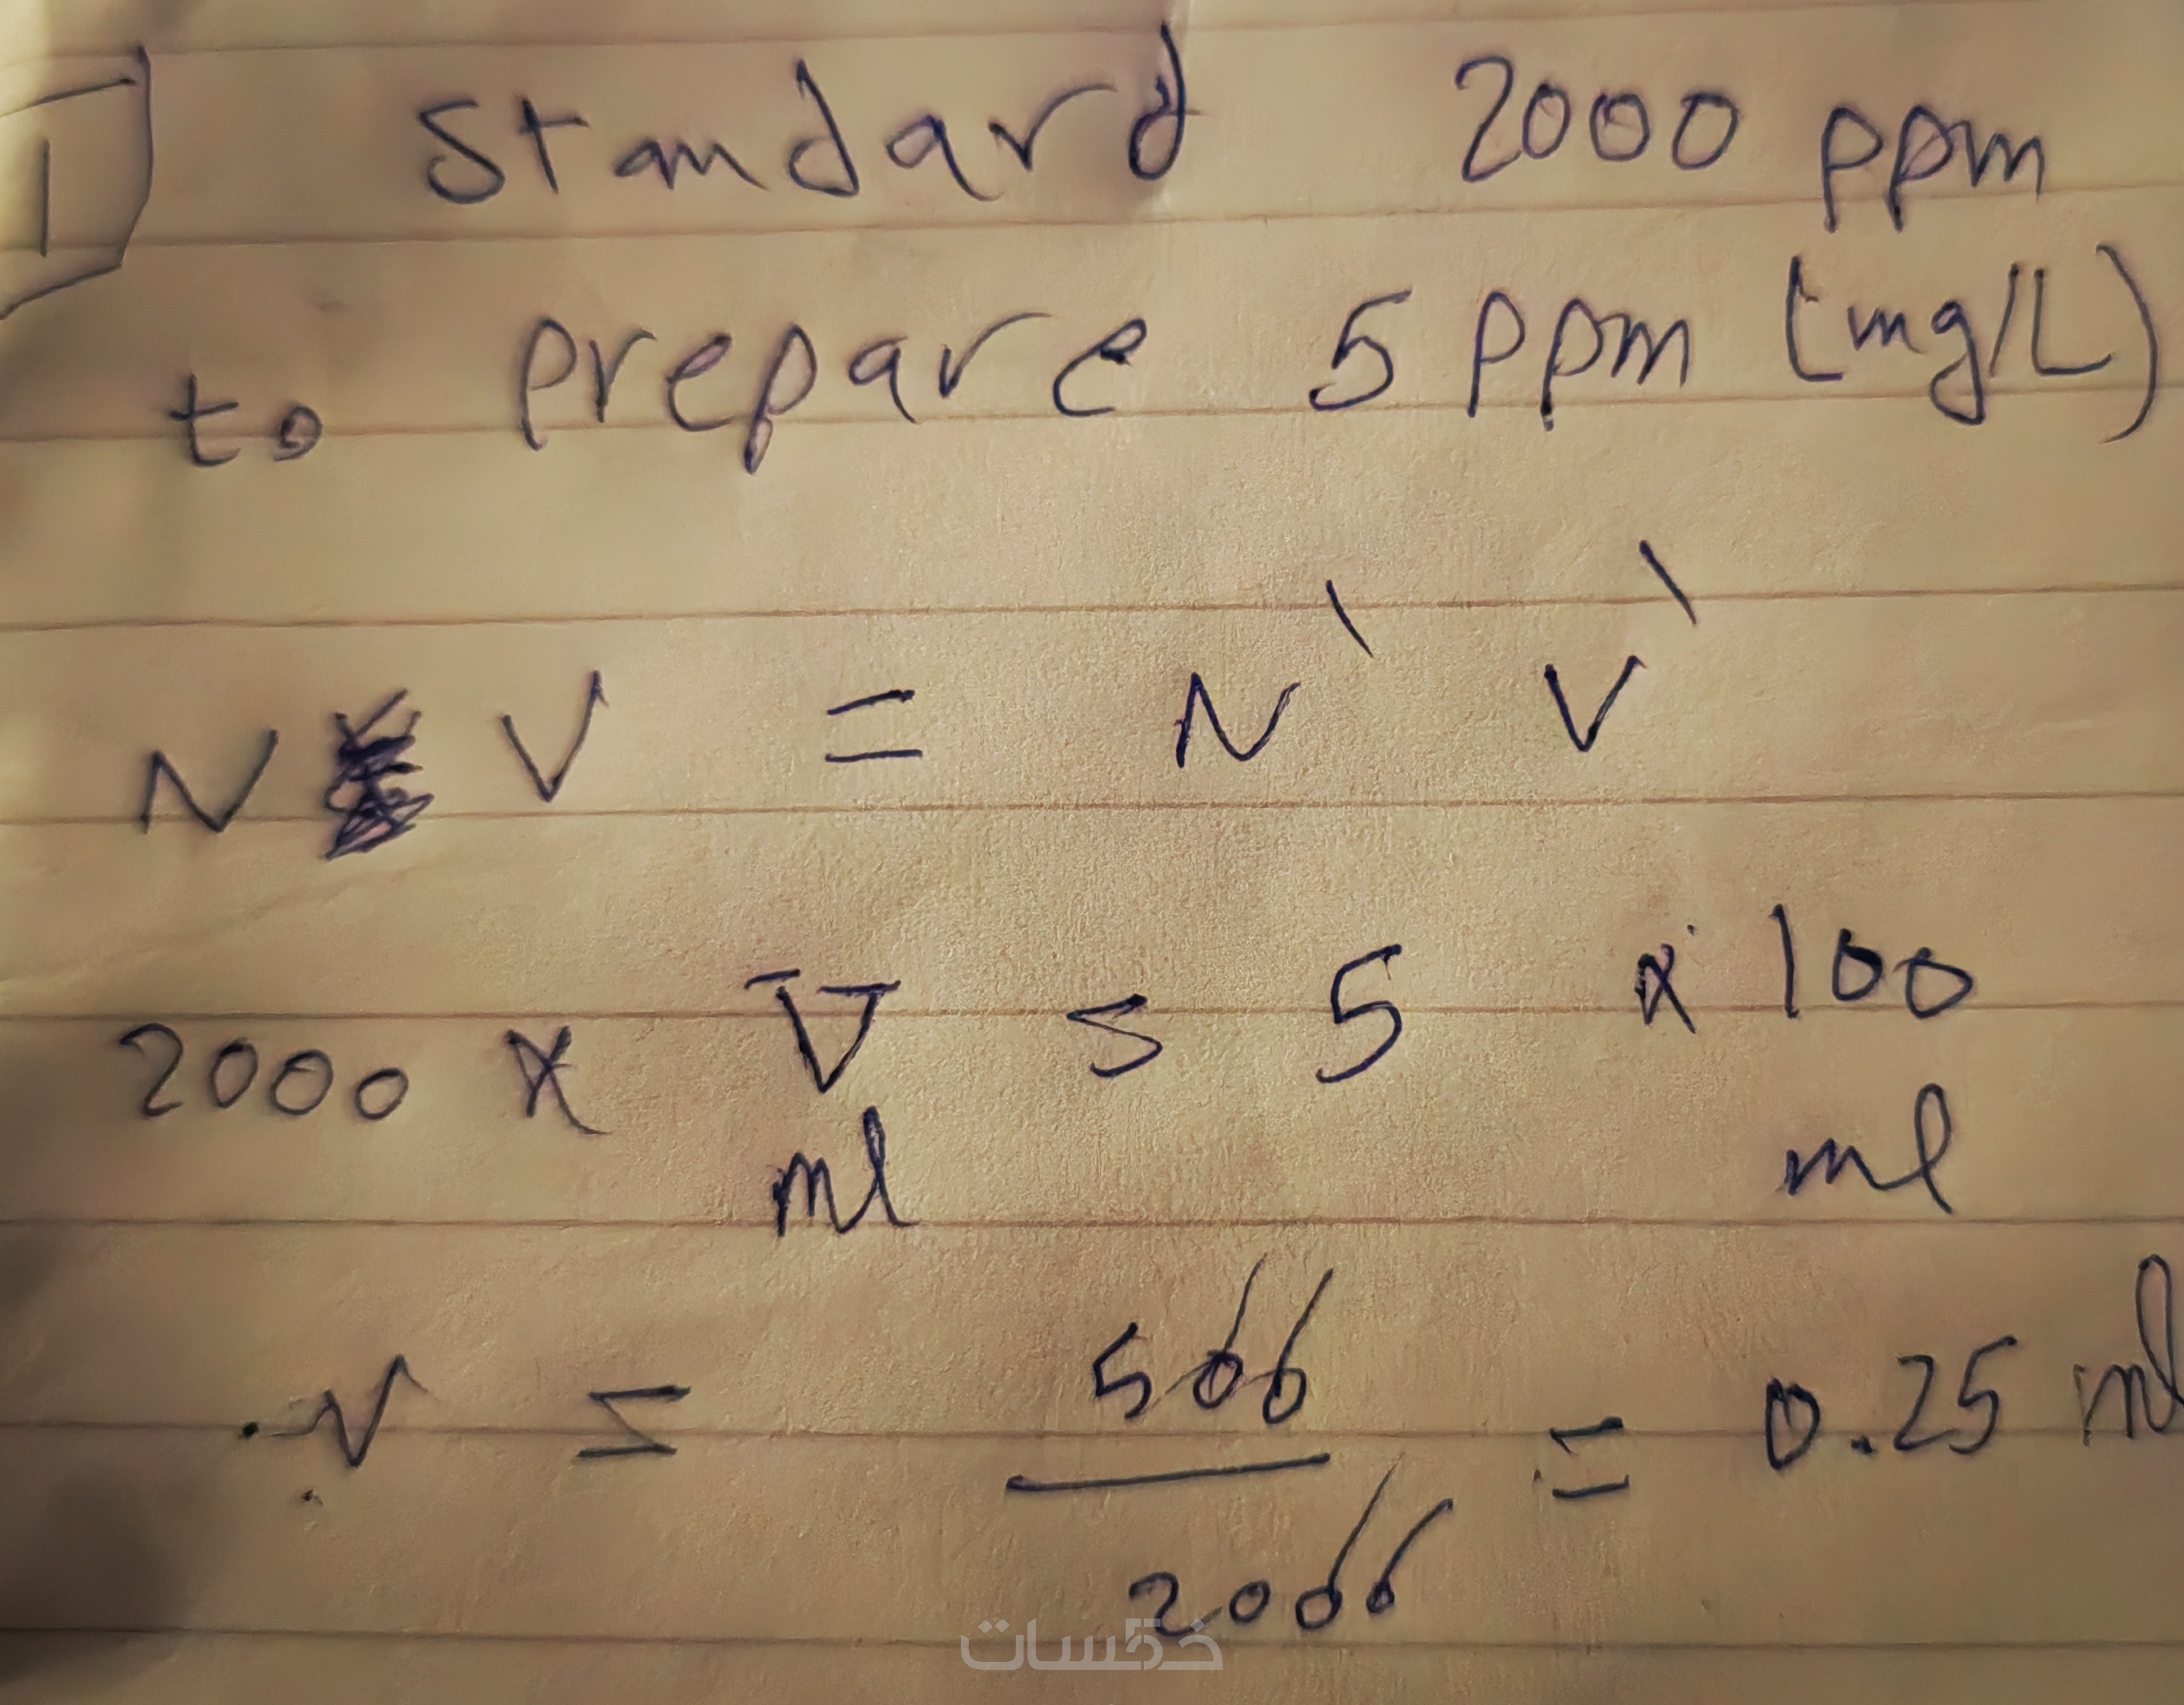 1
standard 2000 ppm
to prepare 5 ppm (mg/L)
N V = N` V`
2000 x V = 5 x 100
ml ml
V = 500 / 2000 = 0.25 ml
خمسات